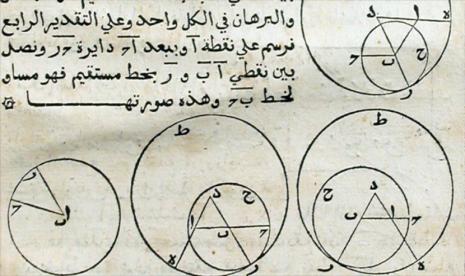 والبرهان في الكل واحد وعلي التقدير الرابع
فنرسم على نقطة ا وببعد ا ح دايرة ح ر ونصل
بين نقطي ا ب و ر بخط مستقيم فهو مساو
لخط ب ح وهذه صورتها
د ا ه
ح ب ح
ر
ط
ط
ر
ح ا ب
د
ح
ا ب ح
ه ر
د
ح
ب ا ح
ر ه